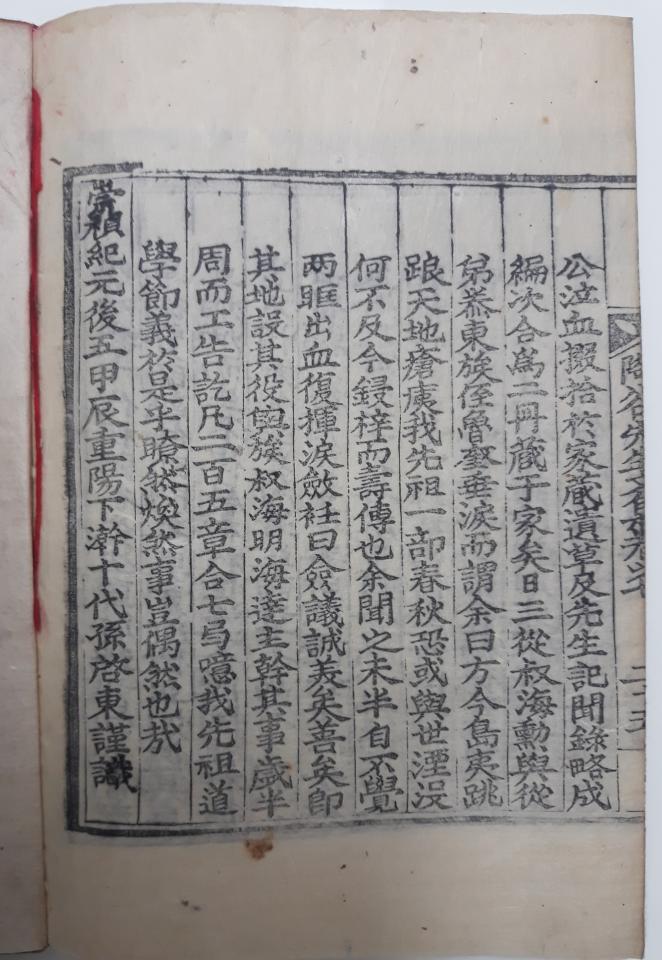 公泣血掇拾於家藏遺草及先生記聞錄略成
編次合爲二冊藏于家矣日三從叔海勳與從
弟恭東族侄魯燮垂淚而謂余曰方今島夷跳
踉天地瘡痍我先祖一部春秋恐或與世湮沒
何不及今鋟梓而壽傳也余聞之未半自不覺
兩眶出血復揮淚斂衽曰僉議誠美矣善矣卽
其地設其役與族叔海明海達主幹其事歲半
周而工告訖凡二百五章合七弓噫我先祖道
學節義於是乎瞭然煥然事豈偶然也哉
崇禎紀元後五甲辰重陽下澣十代孫啓東謹識